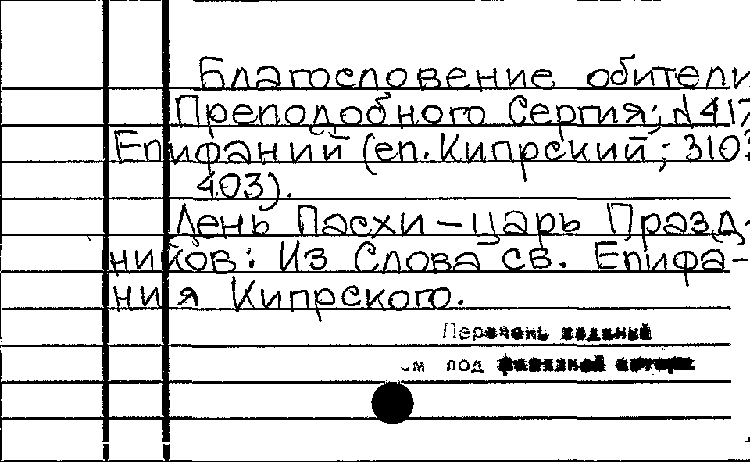 Благословение обители
Преподобного Сергия; №417
Епифаний (еп. Кипрский; 310?
403).
День Пасхи – царь Празд-
ников: Из Слова св. Епифа-
ния Кипрского.
Перечень изданий
см под фамилией автора